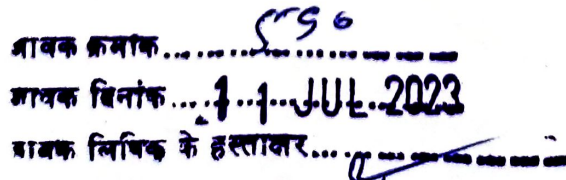 जावक क्रमांक
जावक दिनांक 11 JUL 2023
जावक लिपिक के हस्ताक्षर